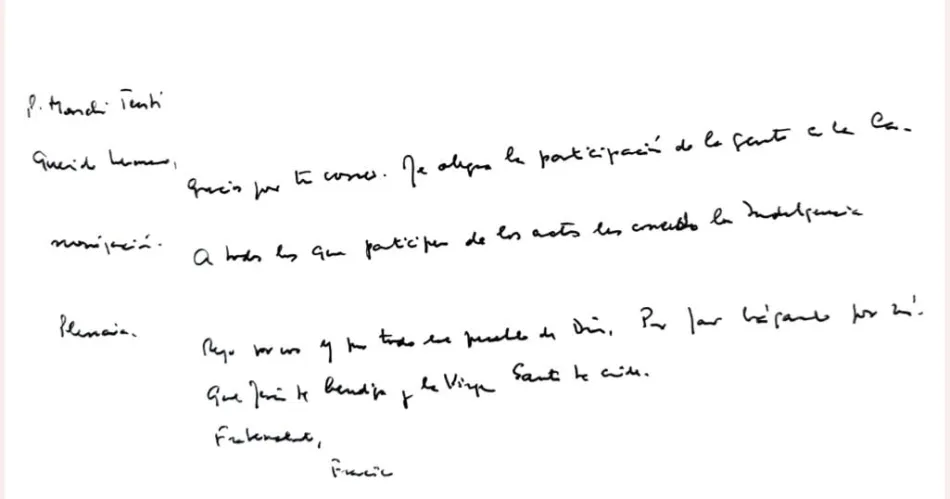 P. Marcelo Tenti
Querido hermano,
Gracias por tu correo. Me alegra la participación de la gente a la Ca-
nonización. A todos los que participen de los actos les concedo la Indulgencia
Plenaria.
Rezo por vos y por todo ese pueblo de Dios. Por favor háganlo por mí.
Que Jesús te bendiga y la Virgen Santa te cuide.
Fraternalmente,
Francisco